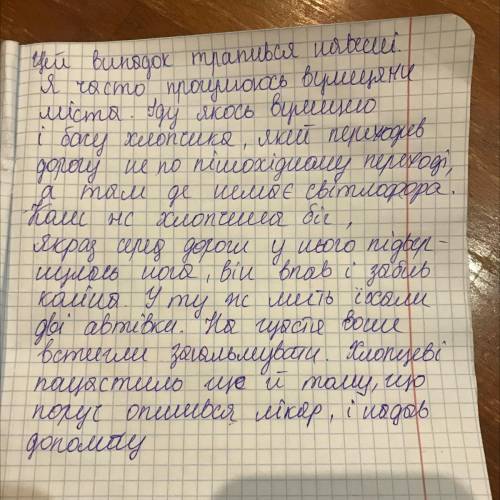 Цей випадок трапився навесні.
Я часто прогулююсь вулицями
міста. Іду якось вулицею
і бачу хлопчика, який переходив
дорогу не по пішохідному переході,
а там де немає світлофора.
Коли же хлопчина біг,
якраз серед дороги у нього підвер-
нулась нога, він впав і забив
коліна. У ту ж мить їхали
дві автівки. На щастя вони
встигли загальмувати. Хлопцеві
пощастило ще й тому, що
поруч опинився лікар, і надав
допомогу